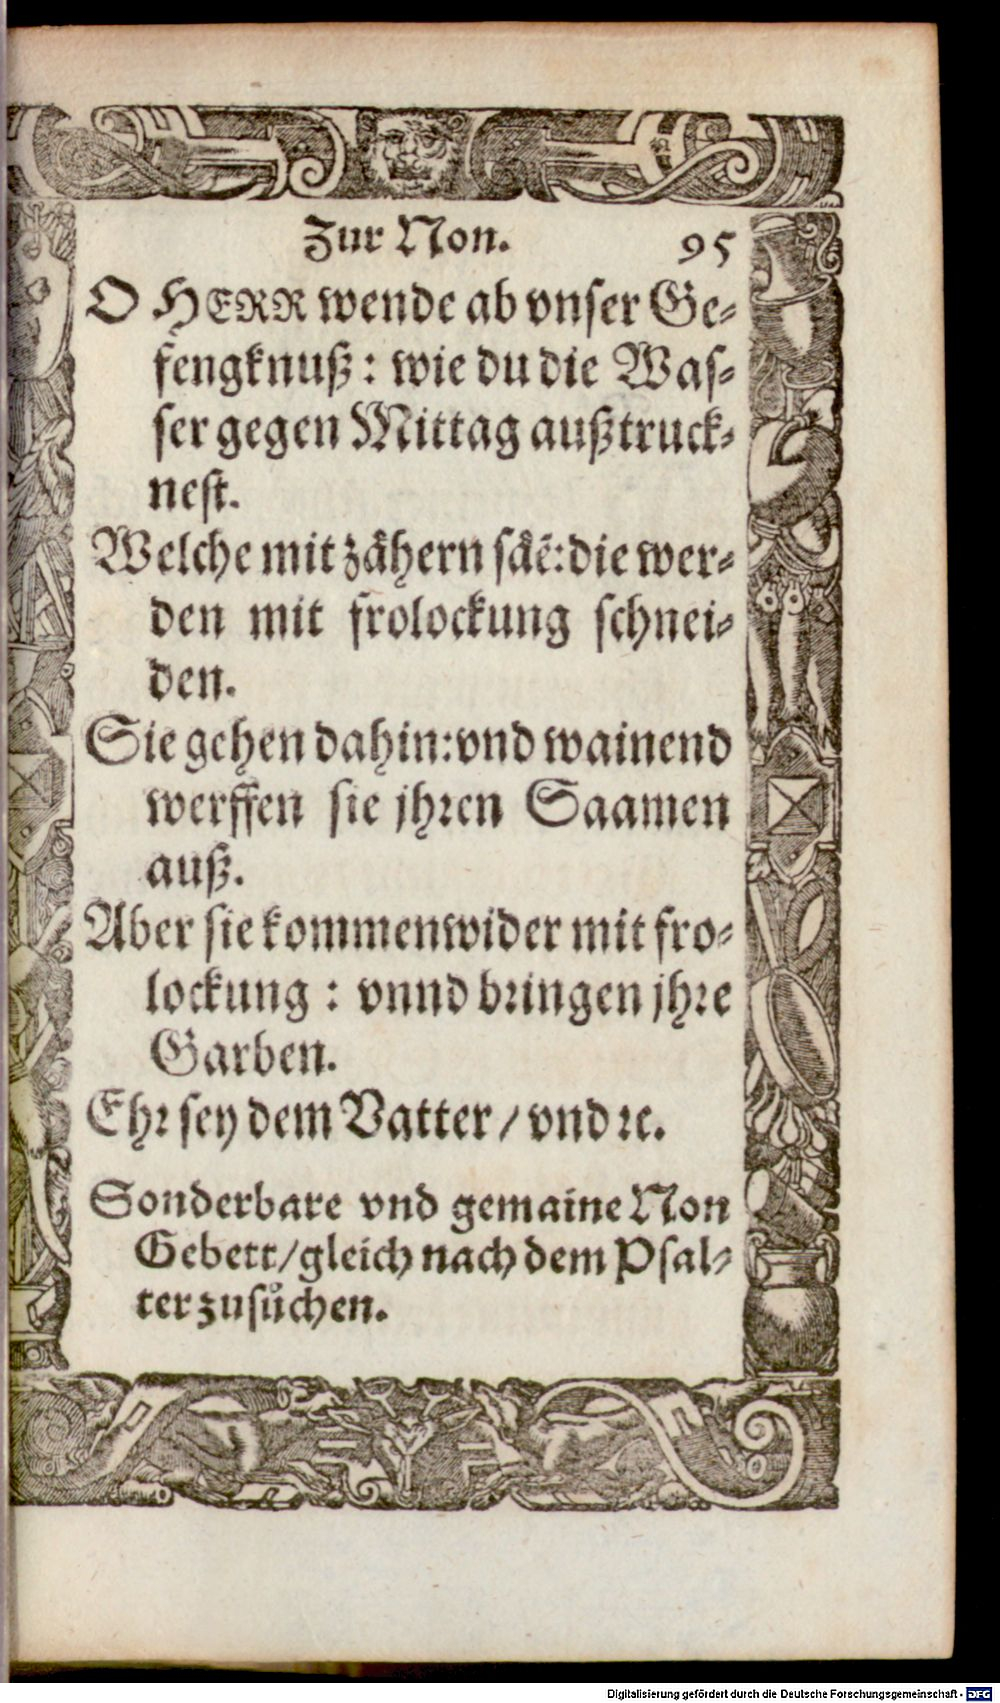 Zur Non. 95
O HERR wende ab vnser Ge-
fengknuß: wie du die Was-
ser gegen Mittag außtruck-
nest.
Welche mit zåhern såẽ: die wer-
den mit frolockung schnei-
den.
Sie gehen dahin: vnd wainend
werffen sie jhren Saamen
auß.
Aber sie kommen wider mit fro-
lockung: vnnd bringen jhre
Garben.
Ehr sey dem Vatter / vnd ꝛc.
Sonderbare vnd gemaine Non
Gebett / gleich nach dem Psal-
ter zusůchen.
Digitalisierung gefördert durch die Deutsche Forschungsgemeinschaft - DFG